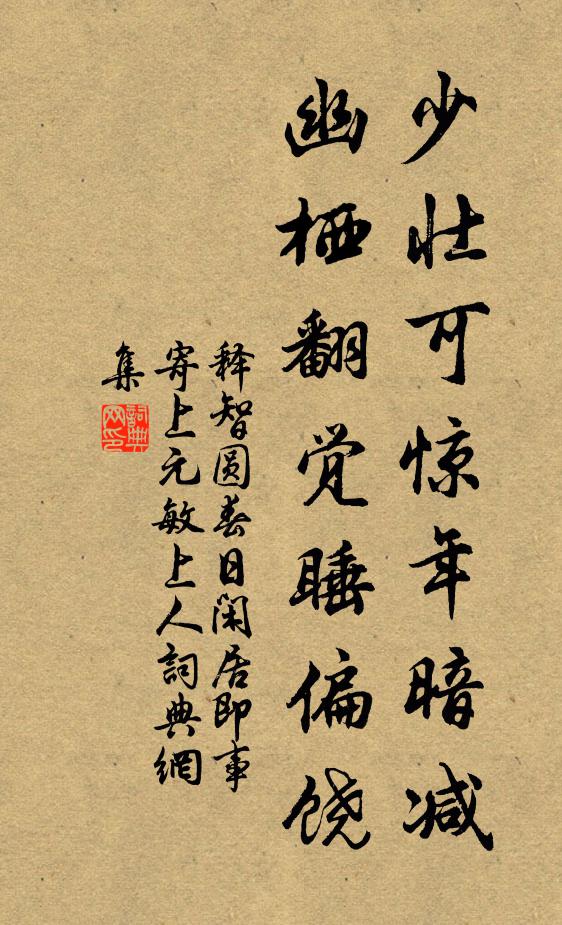 少壮可惊年暗减
幽栖翻觉睡偏饶
释智圆春日闲居即事
寄上元敏上人詞典網
集
詞典网印